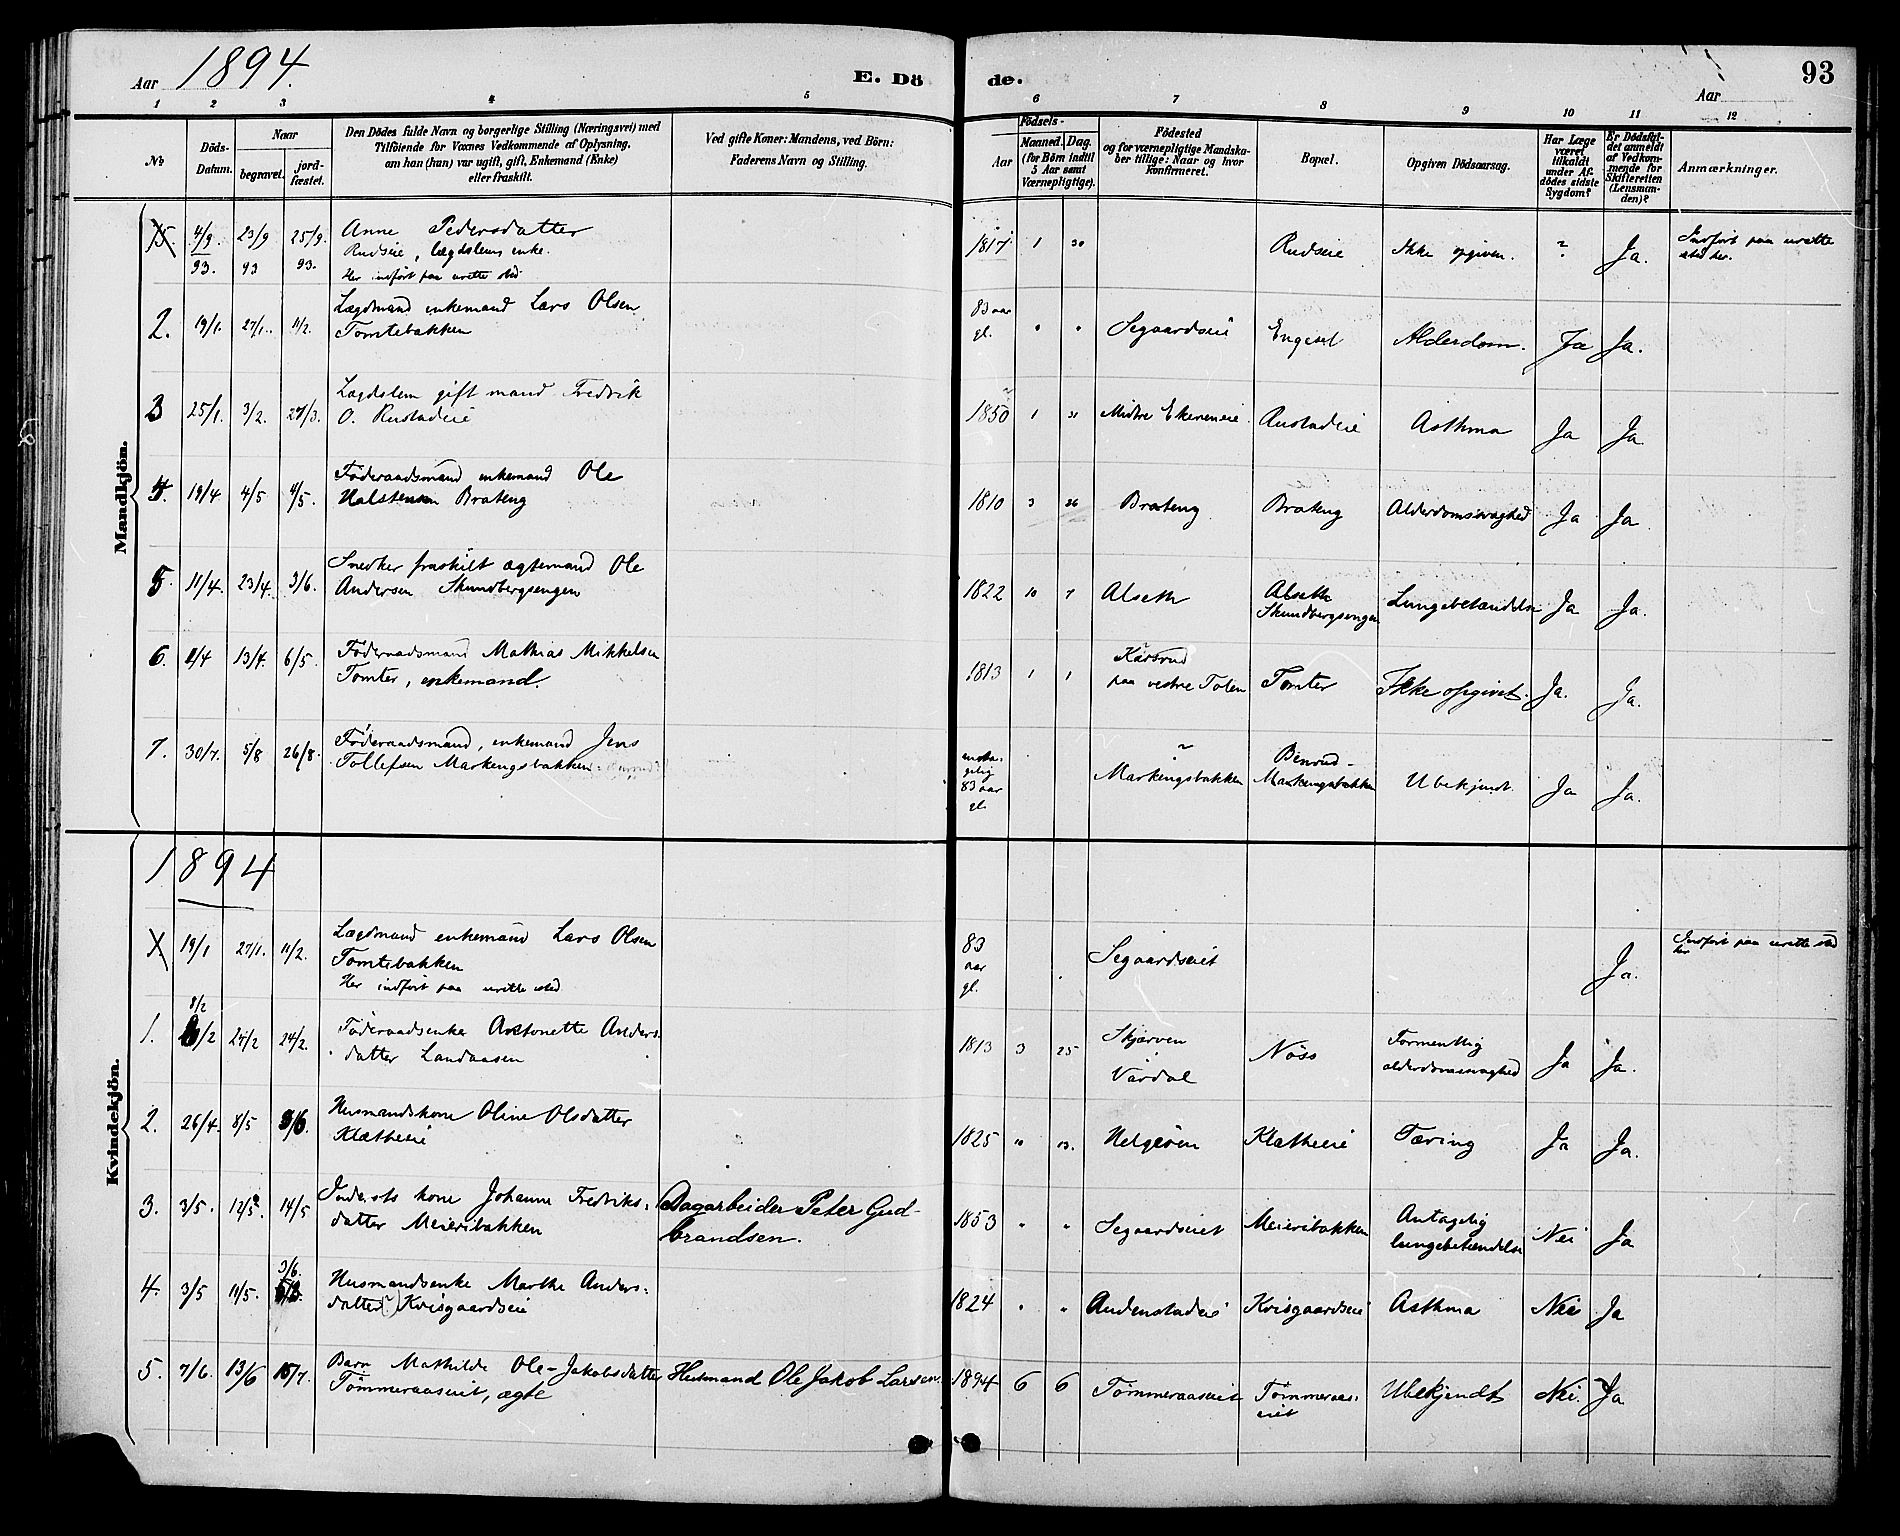 Aar 1894.
E. Dö de.
Aar
93
1 2 3 4 5 6 7 8 9 10 11 12
No
Döds-Datum.
Naar
begravet.
jord-fæstet.
Den Dödes fulde Navn og borgerlige Stilling (Næringsvei) med
Tilföiende for Voxnes Vedkommende af Oplysning,
om han (hun) var ugift, gift, Enkemand (Enke)
eller fraskilt.
Ved gifte Koner: Mandens, ved Börn:
Faderens Navn og Stilling.
Födsels-
Aar
Maaned. Dag.
(for Börn indtil
5 Aar samt
Værnepligtige).
Födested
og for værnepligtige Mandska-
ber tillige: Naar og hvor
konfirmeret.
Bopæl.
Opgiven Dödsaarsag.
Har Læge
været
tilkaldt
under Af-
dödes sidste
Sygdom?
Er Dödsfal-
det anmeldt
af Vedkom-
mende for
Skifteretten
(Lensman-
den)?
Anmærkninger.
Mandkjön.
15. 4/9. 93. 23/9 93 25/9. 93. Anne Pedersdatter
Rudseie, lægdslems enke.
Her indført paa urette sted
1817 1 30 Rudseie Ikke opgiven. ? Ja. Indført paa urette
sted her.
2. 19/1. 27/1. 11/2. Lægdmand enkemand Lars Olsen
Tomtebakken
83 aar gl. " " Segaardseie Alderdom. Ja Ja.
3 25/1. 3/2. 27/3. Lægdslem gift mand Fredrik
O. Rustadeie
1850 1 31 Rustadeie Asthma Ja Ja
4. 19/4 4/5 4/5. Föderaadsmand enkemand Ole
Halstensen Brateng
1810 3 26 Brateng Brateng Alderdomssvaghed Ja Ja
5. 11/4. 23/4. 3/6. Snedker fraskilt ægtemand Ole
Andersen Skundbergsengen
1822 10 7 Alseth Alseth
Skundbergsengen Lungebetændelse Ja Ja.
6. 2/4 13/4. 6/5. Föderaadsmand Mathias Mikkelsen
Tomter, enkemand.
1813 1 1 paa vestre Toten Tomter Ikke opgivet. Ja. Ja.
7. 30/7. 5/8 26/8. Föderaadsmand, enkemand Jens
Tollefsen Markengsbakken
83 aar gl. Markengsbakken
Markengsbakken Ubekjendt. Ja Ja.
Kvindekjön.
1894
X 19/1 27/1. 11/2. Lægdmand enkemand Lars Olsen
Tomtebakken
Her indført paa urette sted
83 aar gl. Segaardseiet Ja. Indført paa urette sted
her
1. 8/2 24/2 24/2. Föderaadsenke Antonette Anders-
datter Landaasen
1813 3 25 Skjerven
Vardal Nöss Formentlig
alderdomssvaghed Ja Ja.
2. 26/4. 8/5 3/6. Husmandskone Oline Olsdatter
Klætheeie
1825 " 13. Helgeøen Klætheeie Tæring Ja Ja.
3. 3/5. 12/5. 14/5 Indersts kone Johanne Fredriks-
datter Meieribakken
Dagarbeider Peter Gud-
brandsen.
1853 " " Segaardseiet Meieribakken Antagelig
lungebetændelse Nei Ja
4. 3/5 11/5. 3/6. Husmandsenke Marthe Anders-
datter (?) Kvisgaardseie
1824 " " Audenstadeie Kvisgaardseie Asthma Nei Ja
5. 7/6. 13/6 15/7. Barn Mathilde Ole-Jakobsdatter
Tømmeraaseiet, ægte
Husmand Ole Jakob Larsen.
1894 6 6 Tømmeraaseiet Tømmeraas-
eiet Ubekjendt Nei. Ja